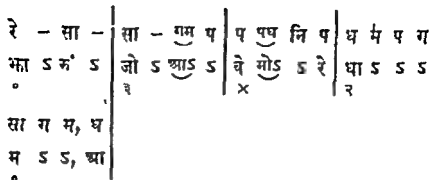 रे – सा – | सा – गम प | प पध नि प | ध म प ग
झा ऽ कं ऽ | जो ऽ आऽ ऽ | वे मोऽ ऽ रे | धा ऽ ऽ ऽ
० ३ × २
सा ग म, ध
म ऽ ऽ, आ
०